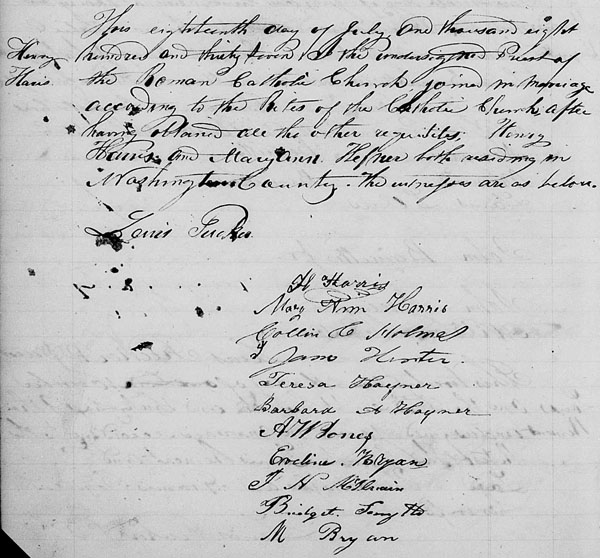 This eighteenth day of July one thousand eight
hundred and thirty seven I the undersigned Priest of
Henry
Haris
the Roman Catholic Church joined in marriage
according to the Rites of the Catholic Church after
having obtained all the other requisites. Henry
Harris and Mary Ann Hefner both residing in
Washington County. The witnesses are as below.
Louis Tucker
H Harris
Mary Ann Harris
Collin C Holmes
Jam Hunter
Teresa Hayner
Barbara A Hayner
A W Jones
Eveline Bryan
J N McIlwain
Bridget Smyth
M Bryan